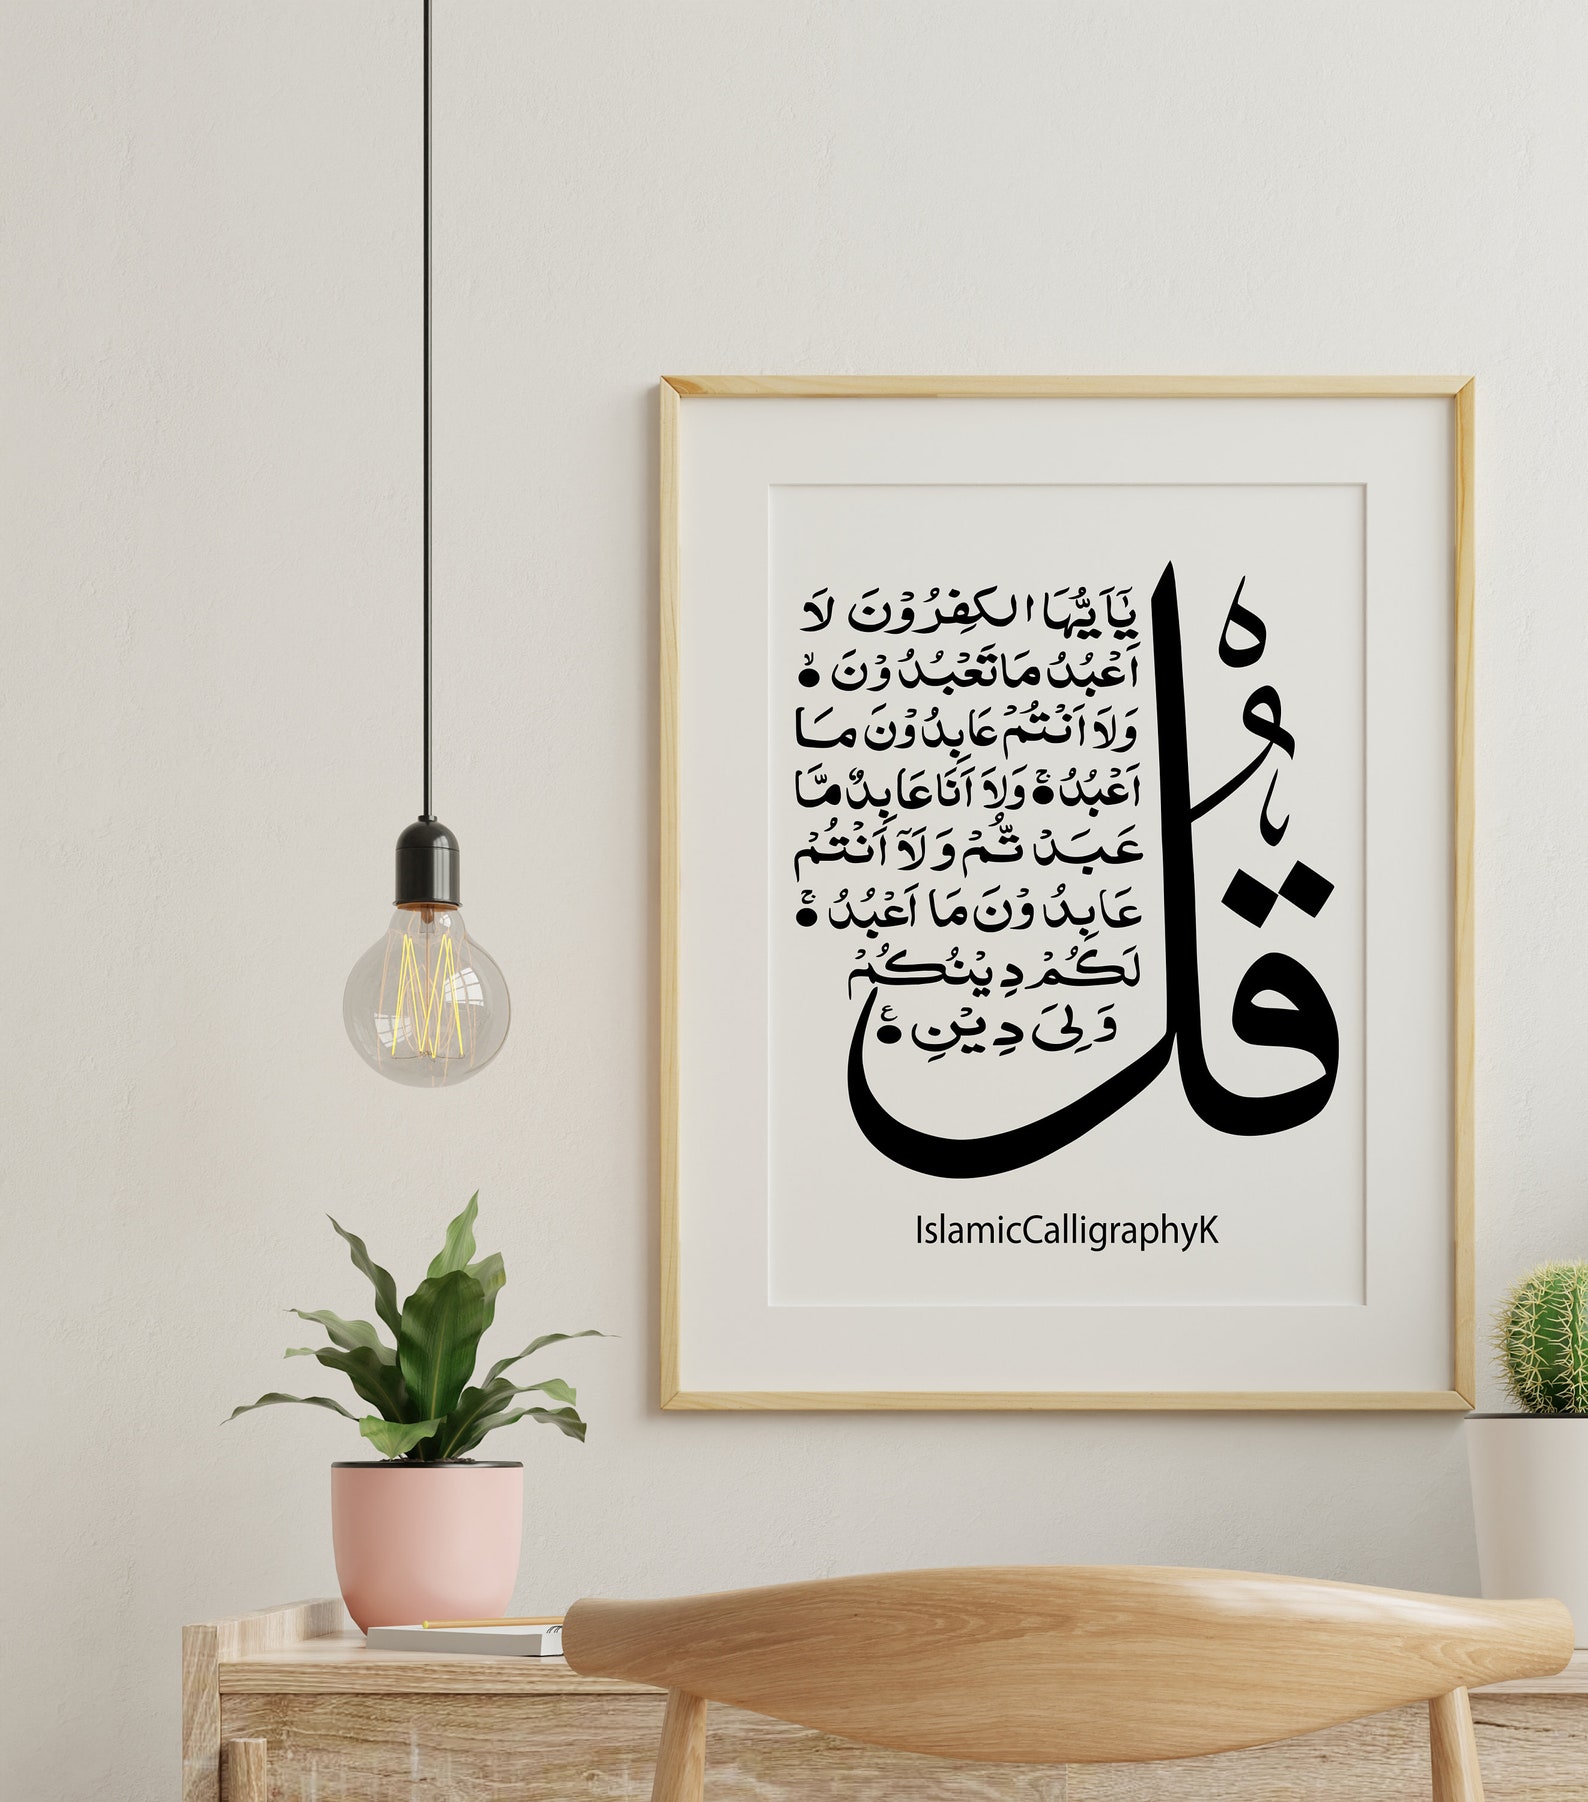 قُل
يٰٓاَيُّهَا الكٰفِرُوْنَ لَا
اَعْبُدُ مَا تَعْبُدُوْنَ ۙ
وَلَا اَنْتُمْ عَابِدُوْنَ مَا
اَعْبُدُ ۚ وَلَا اَنَا عَابِدٌ مَّا
عَبَدْ تُّمْ وَلَآ اَنْتُمْ
عَابِدُوْنَ مَا اَعْبُدُ ۚ
لَكُمْ دِيْنُكُمْ
وَلِىَ دِيْنِ ۚ
IslamicCalligraphyK